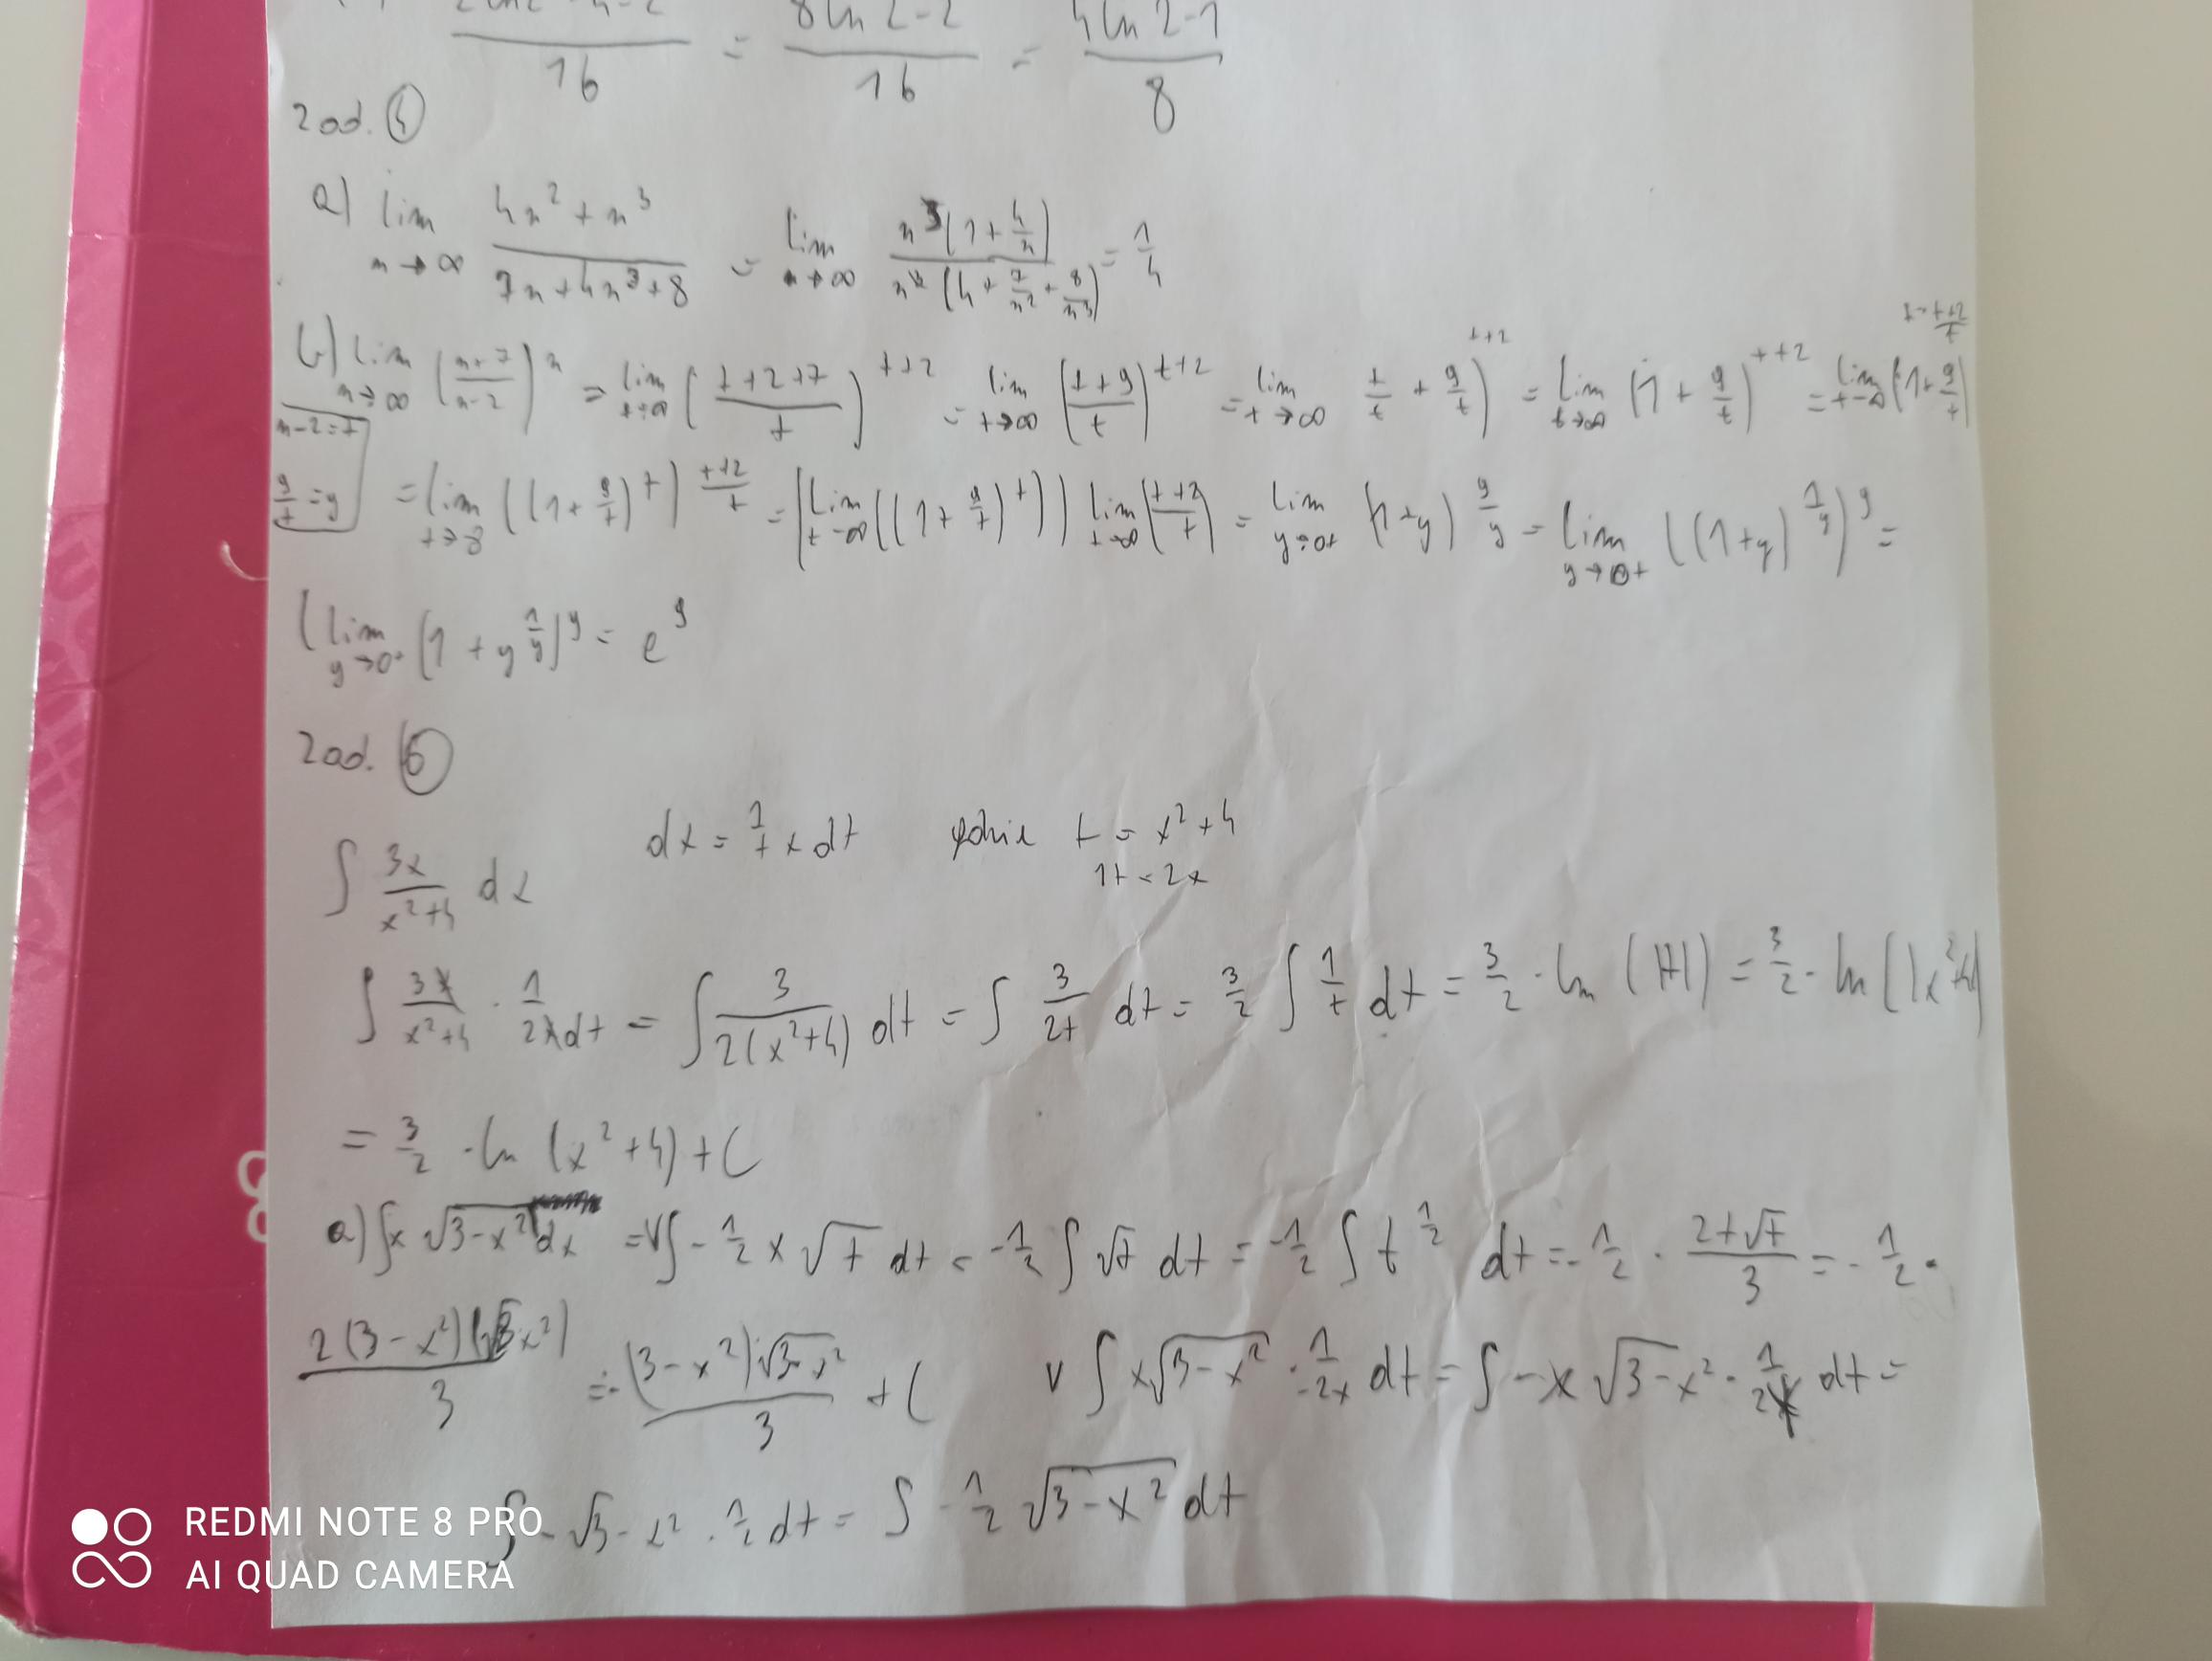 16 = 8 ln 2 - 2 / 16 = 4 ln 2 - 1 / 8
Zad. (4)
a) lim n→∞ (4n² + n³)/(7n + 4n³ + 8) = lim n→∞ n³(1 + 4/n) / n³(4 + 7/n² + 8/n³) = 1/4
b) lim n→∞ ((n+7)/(n-2))^n = lim t→∞ ((t+2+7)/t)^(t+2) = lim t→∞ ((t+9)/t)^(t+2) = lim t→∞ t/t + 9/t)^(t+2) = lim t→∞ (1 + 9/t)^(t+2) = lim t→∞ (1 + 9/t)^(t·(t+2)/t)
n-2=t
9/t = y = lim t→∞ ((1 + 9/t)^t)^((t+2)/t) = (lim t→∞ ((1 + 9/t)^t)) lim t→∞ ((t+2)/t) = lim y→0+ (1+y)^(9/y) = lim y→0+ ((1+y)^(1/y))^9 =
(lim y→0+ (1 + y^(1/y))^9 = e^9
Zad. (6)
dx = 1/t x dt gdzie t = x² + 4
1t = 2x
∫ 3x/(x²+4) dx
∫ 3x/(x²+4) · 1/2x dt = ∫ 3/(2(x²+4)) dt = ∫ 3/2t dt = 3/2 ∫ 1/t dt = 3/2 · ln (|t|) = 3/2 · ln (|x²+4|)
= 3/2 · ln (x² + 4) + C
a) ∫ x √(3-x²) dx = V∫ - 1/2 x √t dt = -1/2 ∫ √t dt = -1/2 ∫ t^(1/2) dt = -1/2 · 2t√t/3 = - 1/2 ·
2(3 - x²)(√3-x²)/3 = -(3 - x²)·√(3-x²)/3 + C V ∫ x√(3-x²) · 1/-2x dt = ∫ -x √(3-x²) · 1/2x dt =
∫ - √3-x² · 1/2 dt = ∫ - 1/2 √(3-x²) dt
REDMI NOTE 8 PRO
AI QUAD CAMERA